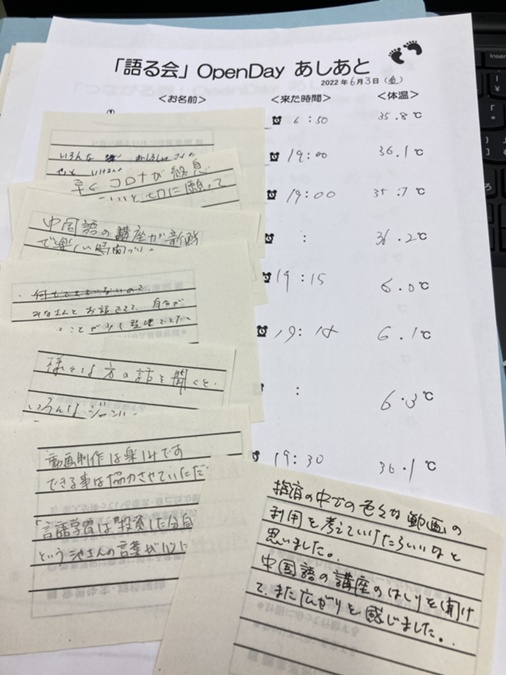 「語る会」OpenDay あしあと
2022年6月3日(金)
<お名前> <来た時間> <体温>
①
6:50 35.8℃
19:00 36.1℃
19:00 35.7℃
: 36.2℃
19:15 6.0℃
19:14 6.1℃
: 6.3℃
19:30 36.1℃
いろんな
早くコロナが終息
切に願って
中国語の講座が新鮮
で楽しい時間
みなさんとお話できて、自分が
ことが少し整理できた
様々な方の話を聞くと、
いろんなジャン
動画制作は楽しみです
できる事は協力させていただ
「言語学習は"投資した分自
という池さんの言葉が心に
指宿の中での色々な動画の
利用を考えていけたらいいなと
思いました。
中国語の講座のはしりを聞け
て、また広がりを感じました。